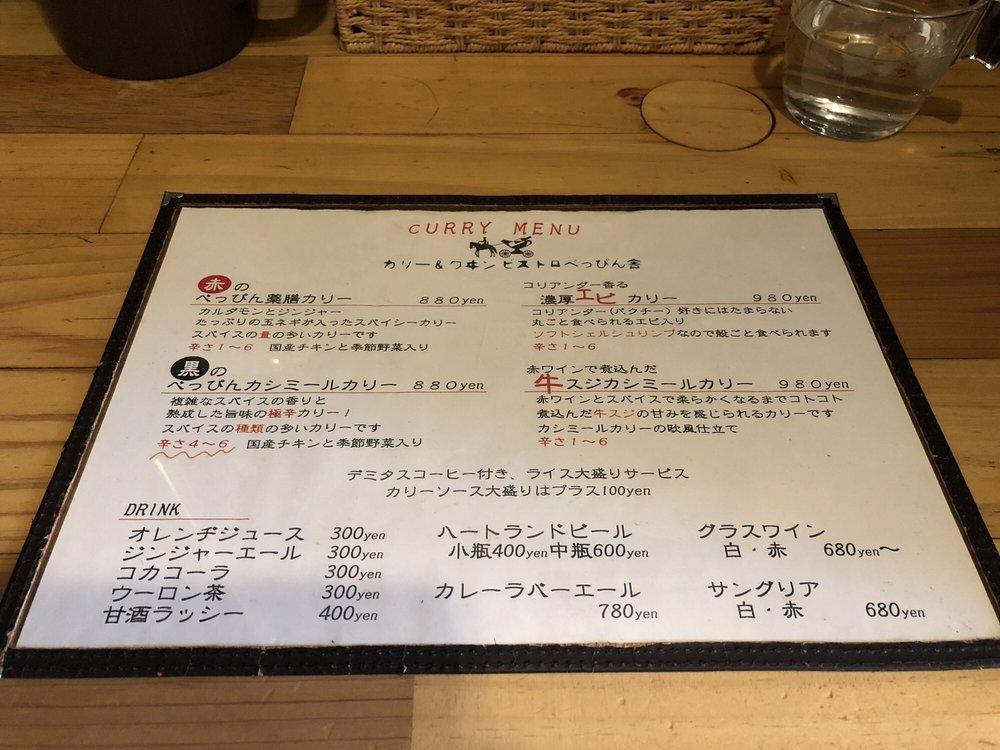 CURRY MENU
カリー&ワヰンビストロべっぴん舎
赤の
べっぴん薬膳カリー 880yen
カルダモンとジンジャー
たっぷりの玉ネギが入ったスパイシーカリー
スパイスの量の多いカリーです
辛さ1~6 国産チキンと季節野菜入り
黒の
べっぴんカシミールカリー 880yen
複雑なスパイスの香りと
熟成した旨味の極辛カリー!
スパイスの種類の多いカリーです
辛さ4~6 国産チキンと季節野菜入り
コリアンダー香る
濃厚エビカリー 980yen
コリアンダー(パクチー)好きにはたまらない
丸ごと食べられるエビ入り
ソフトシェルシュリンプなので殻ごと食べられます
辛さ1~6
赤ワインで煮込んだ
牛スジカシミールカリー 980yen
赤ワインとスパイスで柔らかくなるまでコトコト
煮込んだ牛スジの甘みを感じられるカリーです
カシミールカリーの欧風仕立て
辛さ1~6
デミタスコーヒー付き、ライス大盛りサービス
カリーソース大盛りはプラス100yen
DRINK
オレンヂジュース 300yen
ジンジャーエール 300yen
コカコーラ 300yen
ウーロン茶 300yen
甘酒ラッシー 400yen
ハートランドビール
小瓶400yen中瓶600yen
カレーラバーエール
780yen
グラスワイン
白・赤 680yen~
サングリア
白・赤 680yen